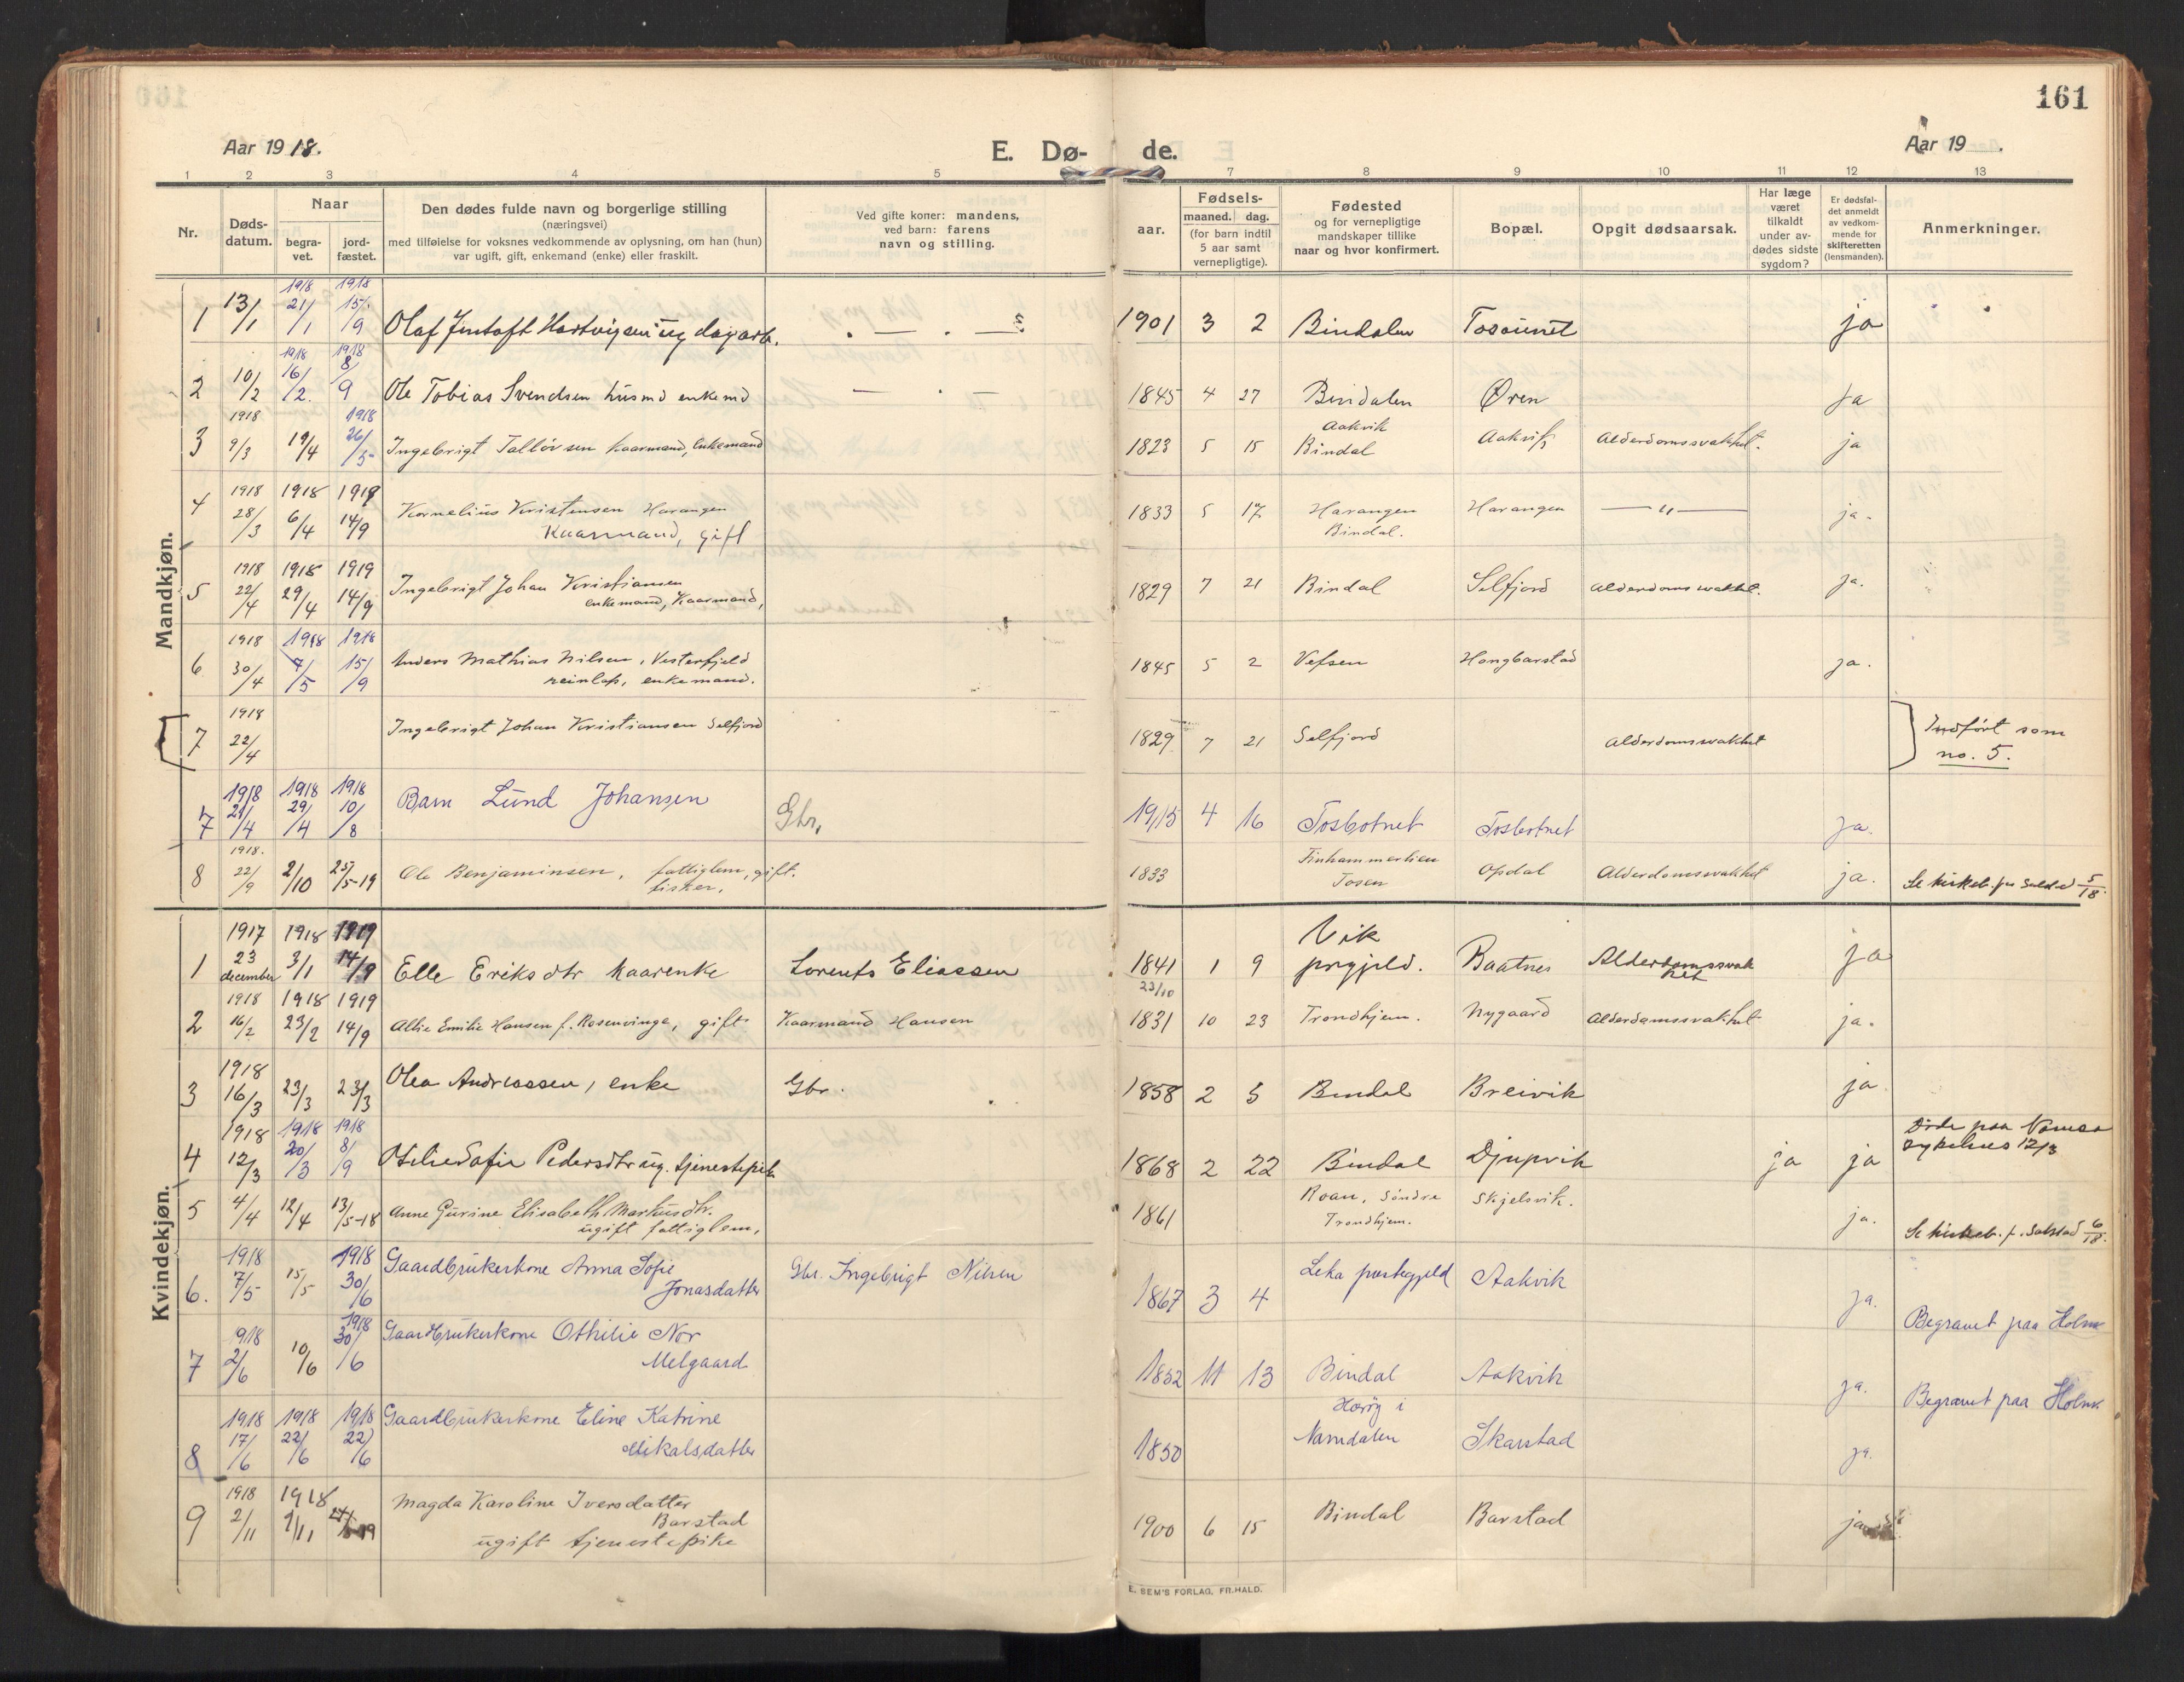 161
Aar 1918.
E. Dø- de.
Aar 19 .
1 2 3 4 5 7 8 9 10 11 12 13
Nr.
Døds-
datum.
Naar
begra-
vet.
jord-
fæstet.
Den dødes fulde navn og borgerlige stilling
(næringsvei)
med tilføielse for voksnes vedkommende av oplysning, om han (hun)
var ugift, gift, enkemand (enke) eller fraskilt.
Ved gifte koner: mandens,
ved barn: farens
navn og stilling.
aar.
Fødsels-
maaned. dag.
(for barn indtil
5 aar samt
vernepligtige).
Fødested
og for vernepligtige
mandskaper tillike
naar og hvor konfirmert.
Bopæl.
Opgit dødsaarsak.
Har læge
været
tilkaldt
under av-
dødes sidste
sygdom?
Er dødsfal-
det anmeldt
av vedkom-
mende for
skifteretten
(lensmanden).
Anmerkninger.
Mandkjøn.
1 13/1 1918 21/1 1918 15/9 Olaf Hartvigsen ug dagarb. 1901 3 2 Bindalen ja
2 10/2 1918 16/2. 1918 8/9 Ole Tobias Svendsen husmd enkemd 1845 4 27 Bindalen Øren ja
3 1918 9/3 19/4 1918 26/5 Ingebrigt kaarmand, enkemand 1823 5 15 Aakvik Bindal Aakvik Alderdomssvakhet. ja
4 1918 28/3 1918 6/4 1919 14/9 Kornelius Kristensen Harangen
Kaarmand, gift 1833 5 17 Harangen Bindal. Harangen — " — ja.
5 1918 22/4 1918 29/4 1919 14/9 Ingebrigt Johan Kristiansen
enkemand, Kaarmand, 1829 7 21 Bindal Selfjord Alderdomssvakhet. ja.
6 1918 30/4 1918 7/5 1918 15/9 Anders Mathias Nilsen, Vesterfjeld
reinlap, enkemand. 1845 5 2 Vefsen ja.
7 1918 22/4 Ingebrigt Johan Kristiansen Selfjord 1829 7 21 Selfjord Alderdomssvakhet Indført som
no. 5.
7 1918 21/4 1918 29/4 1918 10/8 Barn Lund Johansen Gbr. 1915 4 16 Tosbotnet Tosbotnet ja.
8 1918. 22/9 2/10 25/5-19 Ole Benjaminsen, fattiglem, gift.
fisker, 1833 Tosen Opdal Alderdomssvakhet ja. Se kirkeb. for 5/18.
Kvindekjøn.
1 1917 23 december 1918 3/1 1919 14/9 Elle Eriksdtr kaarenke Lorents Eliassen 1841 1 9 Vik prgjeld. Baatnes Alderdomssvak
het ja
2 1918 16/2 1918 23/2 1919 14/9 Emilie Hansen f. Rosenvinge, gift Kaarmand Hansen 23/10 1831 10 23 Trondhjem. Nygaard Alderdomssvakhet ja.
3 1918 16/3 23/3 23/3 Olea Andreassen, enke Gbr. 1858 2 5 Bindal Breivik ja
4 1918 12/3 1918 20/3 1918 8/9 Otilie Sofie Pedersdtr ug. tjenestepik 1868 2 22 Bindal Djupvik ja ja Døde paa Namsos
sykehus 12/3
5 4/4 12/4 13/5-18 Anne Gurine Elisabeth Markusdtr.
ugift fattiglem, 1861 Roan, Søndre
Trondhjem. Skjelsvik. ja. Se kirkeb. f. Solstad 6/18.
6. 1918 7/5 15/5 1918 30/6 Gaardbrukerkone Anna Sofie
Jonasdatter Gbr. Ingebrigt Nilsen 1867 3 4 Leka prestegjeld Aakvik ja. Begravet paa Holm
7 918 2/6 10/6 1918 30/6 Gaardbrukerkone Othilie Nor
Melgaard 1852 11 13 Bindal Aakvik ja. Begravet paa Holm
8 1918 17/6 1918 22/6 1918 22/6 Gaardbrukerkone Eline Katrine
Mikalsdatter 1850 i
Namdalen Skarstad ja.
9 1918 2/11 1918 9/11 Magda Karoline Iversdatter
Barstad
ugift tjenestepike 1900 6 15 Bindal Barstad ja
E. SEM'S FORLAG, FR.HALD.